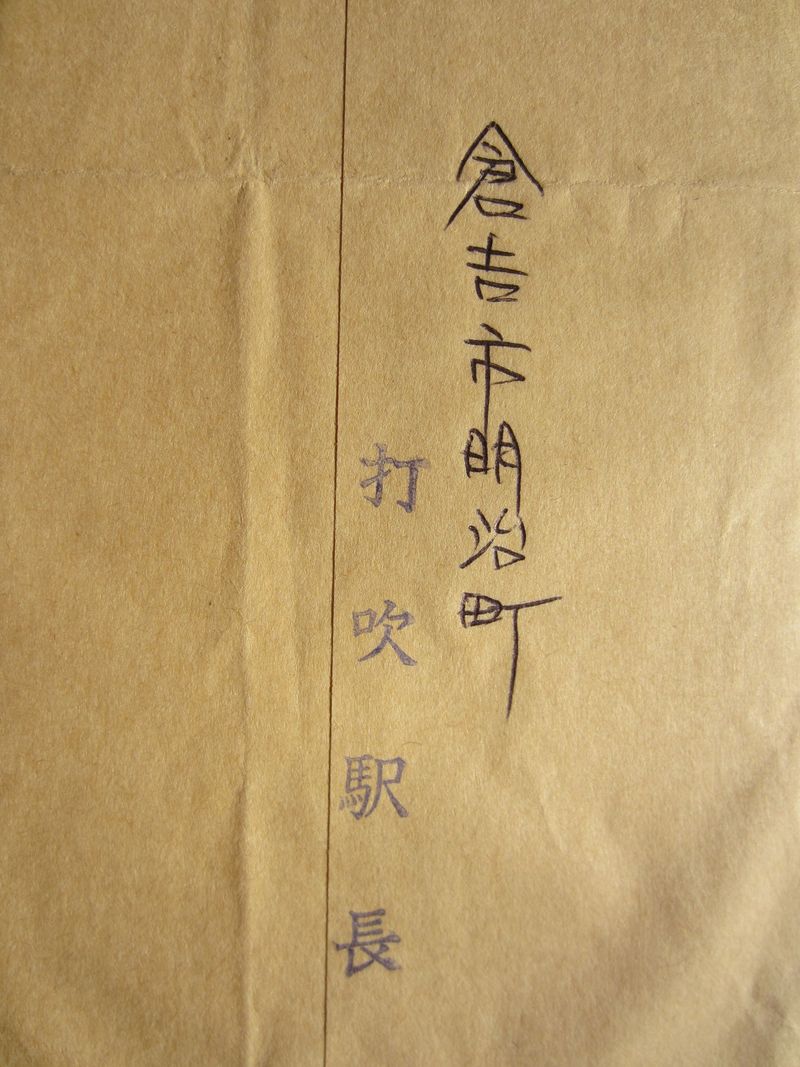 倉吉市明治町
打吹駅長